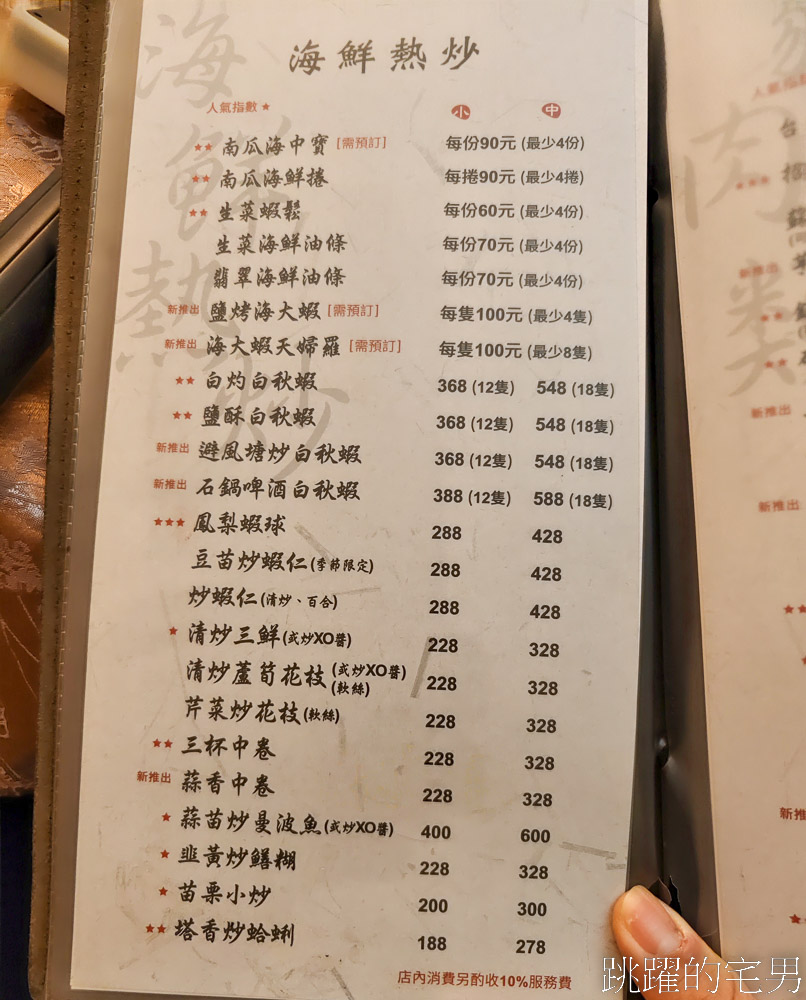 海鮮熱炒
海鮮熱炒
人氣指數★ 小 中
★★ 南瓜海中寶 [需預訂] 每份90元 (最少4份)
★★ 南瓜海鮮捲 每捲90元 (最少4捲)
★★ 生菜蝦鬆 每份60元 (最少4份)
生菜海鮮油條 每份70元 (最少4份)
翡翠海鮮油條 每份70元 (最少4份)
新推出 鹽烤海大蝦 [需預訂] 每隻100元 (最少4隻)
新推出 海大蝦天婦羅 [需預訂] 每隻100元 (最少8隻)
★★ 白灼白秋蝦 368 (12隻) 548 (18隻)
★★ 鹽酥白秋蝦 368 (12隻) 548 (18隻)
新推出 避風塘炒白秋蝦 368 (12隻) 548 (18隻)
新推出 石鍋啤酒白秋蝦 388 (12隻) 588 (18隻)
★★★ 鳳梨蝦球 288 428
豆苗炒蝦仁(季節限定) 288 428
炒蝦仁(清炒、百合) 288 428
★ 清炒三鮮(或炒XO醬) 228 328
清炒蘆筍花枝(或炒XO醬)(軟絲) 228 328
芹菜炒花枝(軟絲) 228 328
★★ 三杯中卷 228 328
新推出 蒜香中卷 228 328
★ 蒜苗炒曼波魚(或炒XO醬) 400 600
★ 韮黃炒鱔糊 228 328
★ 苗栗小炒 200 300
★★ 塔香炒蛤蜊 188 278
店內消費另酌收10%服務費
跳躍的宅男